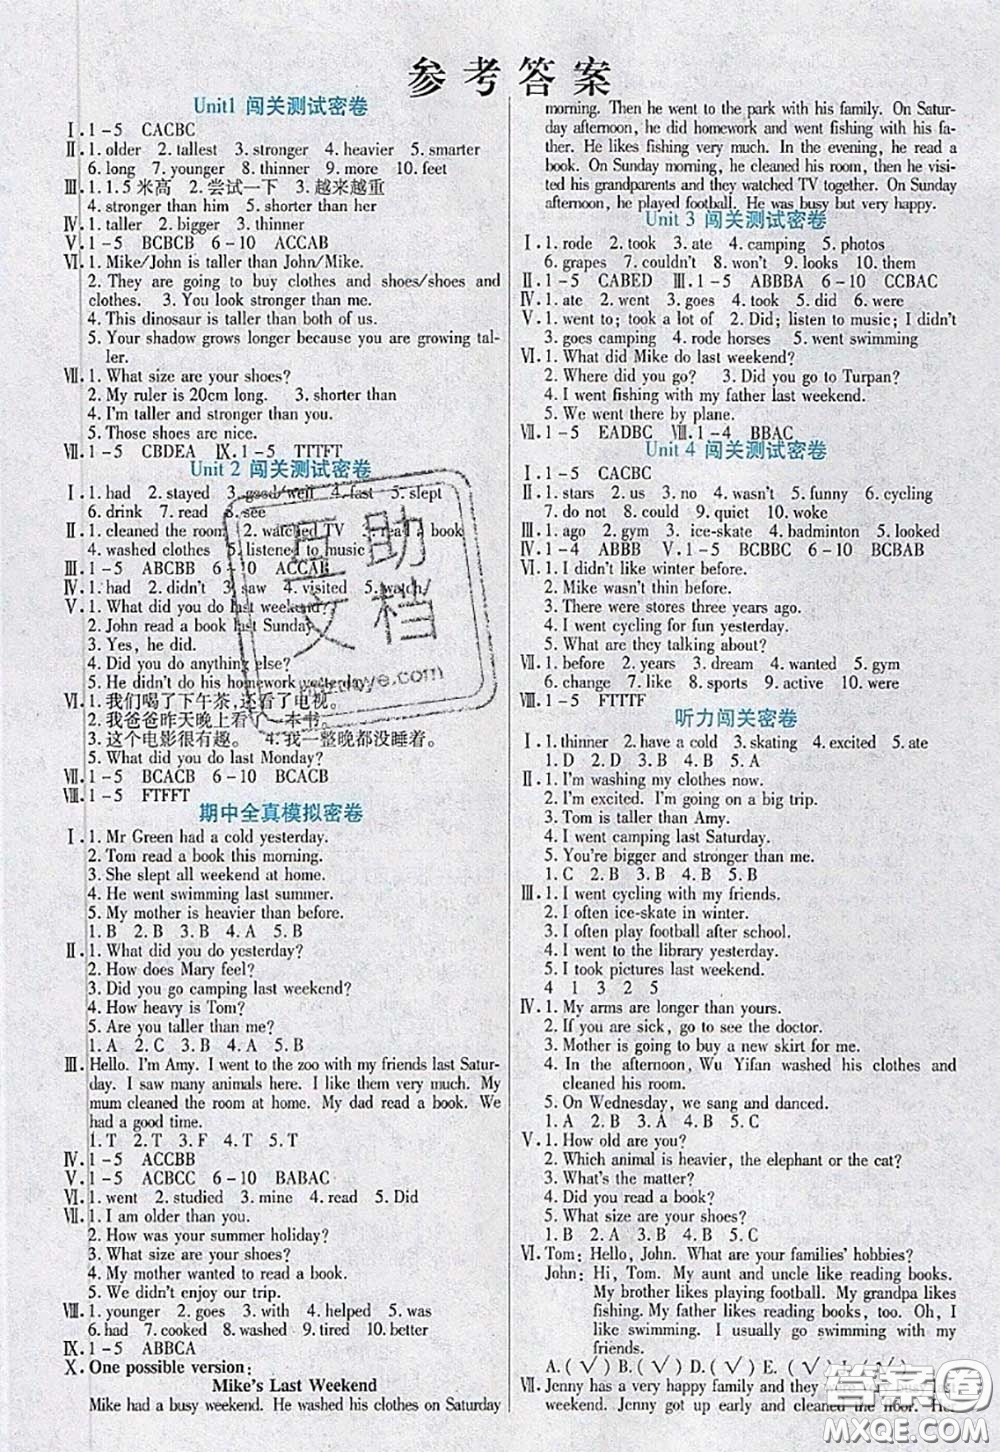 参考答案
Unit1 闯关测试密卷
Ⅰ. 1-5 CACBC
Ⅱ. 1. older 2. tallest 3. stronger 4. heavier 5. smarter
6. long 7. younger 8. thinner 9. more 10. feet
Ⅲ. 1. 1.5 米高 2. 尝试一下 3. 越来越重
4. stronger than him 5. shorter than her
Ⅳ. 1. taller 2. bigger 3. thinner
Ⅴ. 1-5 BCBCB 6-10 ACCAB
Ⅵ. 1. Mike/John is taller than John/Mike.
2. They are going to buy clothes and shoes/shoes and
clothes. 3. You look stronger than me.
4. This dinosaur is taller than both of us.
5. Your shadow grows longer because you are growing tal-
ler.
Ⅶ. 1. What size are your shoes?
2. My ruler is 20cm long. 3. shorter than
4. I'm taller and stronger than you.
5. Those shoes are nice.
Ⅷ. 1-5 CBDEA Ⅸ. 1-5 TTTFT
Unit 2 闯关测试密卷
Ⅰ. 1. had 2. stayed 3. good/well 4. fast 5. slept
6. drink 7. read 8. see
Ⅱ. 1. cleaned the room 2. watched TV 3. read a book
4. washed clothes 5. listened to music
Ⅲ. 1-5 ABCBB 6-10 ACCAB
Ⅳ. 1. had 2. didn't 3. saw 4. visited 5. watch
Ⅴ. 1. What did you do last weekend?
2. John read a book last Sunday.
3. Yes, he did.
4. Did you do anything else?
5. He didn't do his homework yesterday.
Ⅵ. 1. 我们喝了下午茶,还看了电视。
2. 我爸爸昨天晚上看了一本书。
3. 这个电影很有趣。 4. 我一整晚都没睡着。
5. What did you do last Monday?
Ⅶ. 1-5 BCACB 6-10 BCACB
Ⅷ. 1-5 FTFFT
期中全真模拟密卷
Ⅰ. 1. Mr Green had a cold yesterday.
2. Tom read a book this morning.
3. She slept all weekend at home.
4. He went swimming last summer.
5. My mother is heavier than before.
1. B 2. B 3. B 4. A 5. B
Ⅱ. 1. What did you do yesterday?
2. How does Mary feel?
3. Did you go camping last weekend?
4. How heavy is Tom?
5. Are you taller than me?
1. A 2. C 3. B 4. A 5. B
Ⅲ. Hello. I'm Amy. I went to the zoo with my friends last Satur-
day. I saw many animals here. I like them very much. My
mum cleaned the room at home. My dad read a book. We
had a good time.
1. T 2. T 3. F 4. T 5. T
Ⅳ. 1-5 ACCBB
Ⅴ. 1-5 ACBCC 6-10 BABAC
Ⅵ. 1. went 2. studied 3. mine 4. read 5. Did
Ⅶ. 1. I am older than you.
2. How was your summer holiday?
3. What size are your shoes?
4. My mother wanted to read a book.
5. We didn't enjoy our trip.
Ⅷ. 1. younger 2. goes 3. with 4. helped 5. was
6. had 7. cooked 8. washed 9. tired 10. better
Ⅸ. 1-5 ABBCA
Ⅹ. One possible version:
Mike's Last Weekend
Mike had a busy weekend. He washed his clothes on Saturday
morning. Then he went to the park with his family. On Satur-
day afternoon, he did homework and went fishing with his fa-
ther. He likes fishing very much. In the evening, he read a
book. On Sunday morning, he cleaned his room, then he visi-
ted his grandparents and they watched TV together. On Sunday
afternoon, he played football. He was busy but very happy.
Unit 3 闯关测试密卷
Ⅰ. 1. rode 2. took 3. ate 4. camping 5. photos
6. grapes 7. couldn't 8. won 9. looks 10. them
Ⅱ. 1-5 CABED Ⅲ. 1-5 ABBBA 6-10 CCBAC
Ⅳ. 1. ate 2. went 3. goes 4. took 5. did 6. were
Ⅴ. 1. went to; took a lot of 2. Did; listen to music; I didn't
3. goes camping 4. rode horses 5. went swimming
Ⅵ. 1. What did Mike do last weekend?
2. Where did you go? 3. Did you go to Turpan?
4. I went fishing with my father last weekend.
5. We went there by plane.
Ⅶ. 1-5 EADBC Ⅷ. 1-4 BBAC
Unit 4 闯关测试密卷
Ⅰ. 1-5 CACBC
Ⅱ. 1. stars 2. us 3. no 4. wasn't 5. funny 6. cycling
7. do not 8. could 9. quiet 10. woke
Ⅲ. 1. ago 2. gym 3. ice-skate 4. badminton 5. looked
Ⅳ. 1-4 ABBB Ⅴ. 1-5 BCBBC 6-10 BCBAB
Ⅵ. 1. I didn't like winter before.
2. Mike wasn't thin before.
3. There were stores three years ago.
4. I went cycling for fun yesterday.
5. What are they talking about?
Ⅶ. 1. before 2. years 3. dream 4. wanted 5. gym
6. change 7. like 8. sports 9. active 10. were
Ⅷ. 1-5 FTTTF
听力闯关密卷
Ⅰ. 1. thinner 2. have a cold 3. skating 4. excited 5. ate
1. D 2. D 3. B 4. B 5. A
Ⅱ. 1. I'm washing my clothes now.
2. I'm excited. I'm going on a big trip.
3. Tom is taller than Amy.
4. I went camping last Saturday.
5. You're bigger and stronger than me.
1. C 2. B 3. B 4. A 5. B
Ⅲ. 1. I went cycling with my friends.
2. I often ice-skate in winter.
3. I often play football after school.
4. I went to the library yesterday.
5. I took pictures last weekend.
4 1 3 2 5
Ⅳ. 1. My arms are longer than yours.
2. If you are sick, go to see the doctor.
3. Mother is going to buy a new skirt for me.
4. In the afternoon, Wu Yifan washed his clothes and
cleaned his room.
5. On Wednesday, we sang and danced.
1. A 2. B 3. A 4. B 5. B
Ⅴ. 1. How old are you?
2. Which animal is heavier, the elephant or the cat?
3. What's the matter?
4. Did you read a book?
5. What size are your shoes?
1. B 2. B 3. A 4. B 5. C
Ⅵ. Tom: Hello, John. What are your families' hobbies?
John: Hi, Tom. My aunt and uncle like reading books.
My brother likes playing football. My grandpa likes
fishing. My father likes reading books, too. Oh, I
like swimming. I usually go swimming with my
friends.
A. (√) B. (√) D. (√) E. (√)
Ⅶ. Jenny has a very happy family and they
weekend. Jenny got up early and cleaned the floor.
互助
文档
答案圈
MXQE.COM